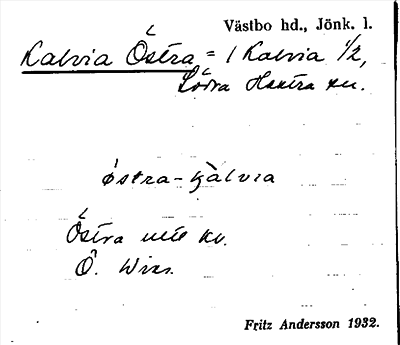 Västbo hd., Jönk. l.
Kalvia Östra = 1 Kalvia 1/2,
Södra Hestra sn.
östra-kàlvıa
Östra mtl kv.
Ö. Wies.
Fritz Andersson 1932.